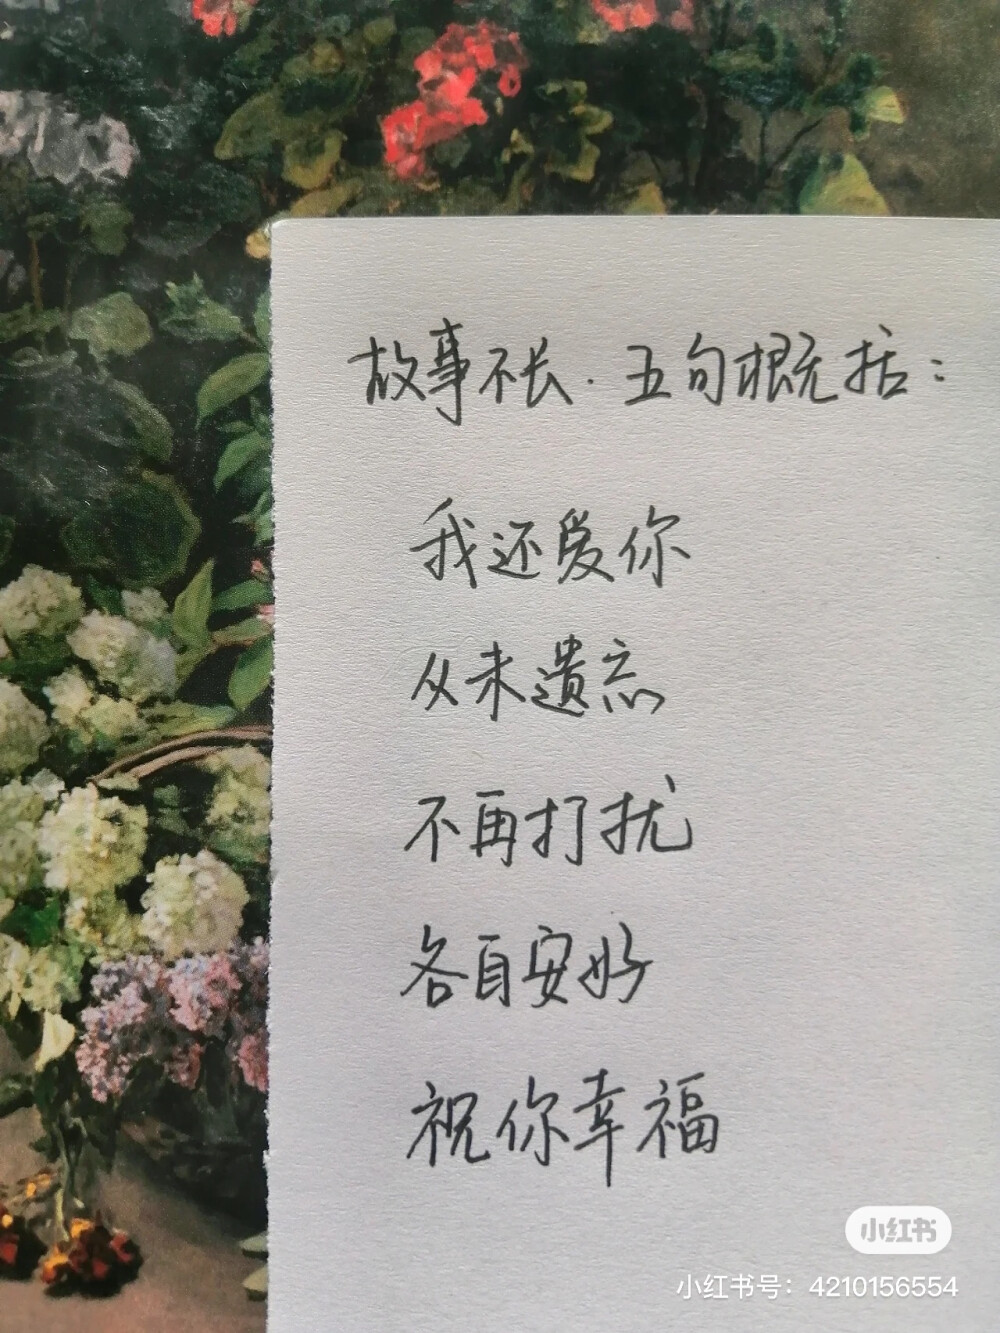 故事不长.五句概括:
我还爱你
从未遗忘
不再打扰
各自安好
祝你幸福
小红书
小红书号：4210156554